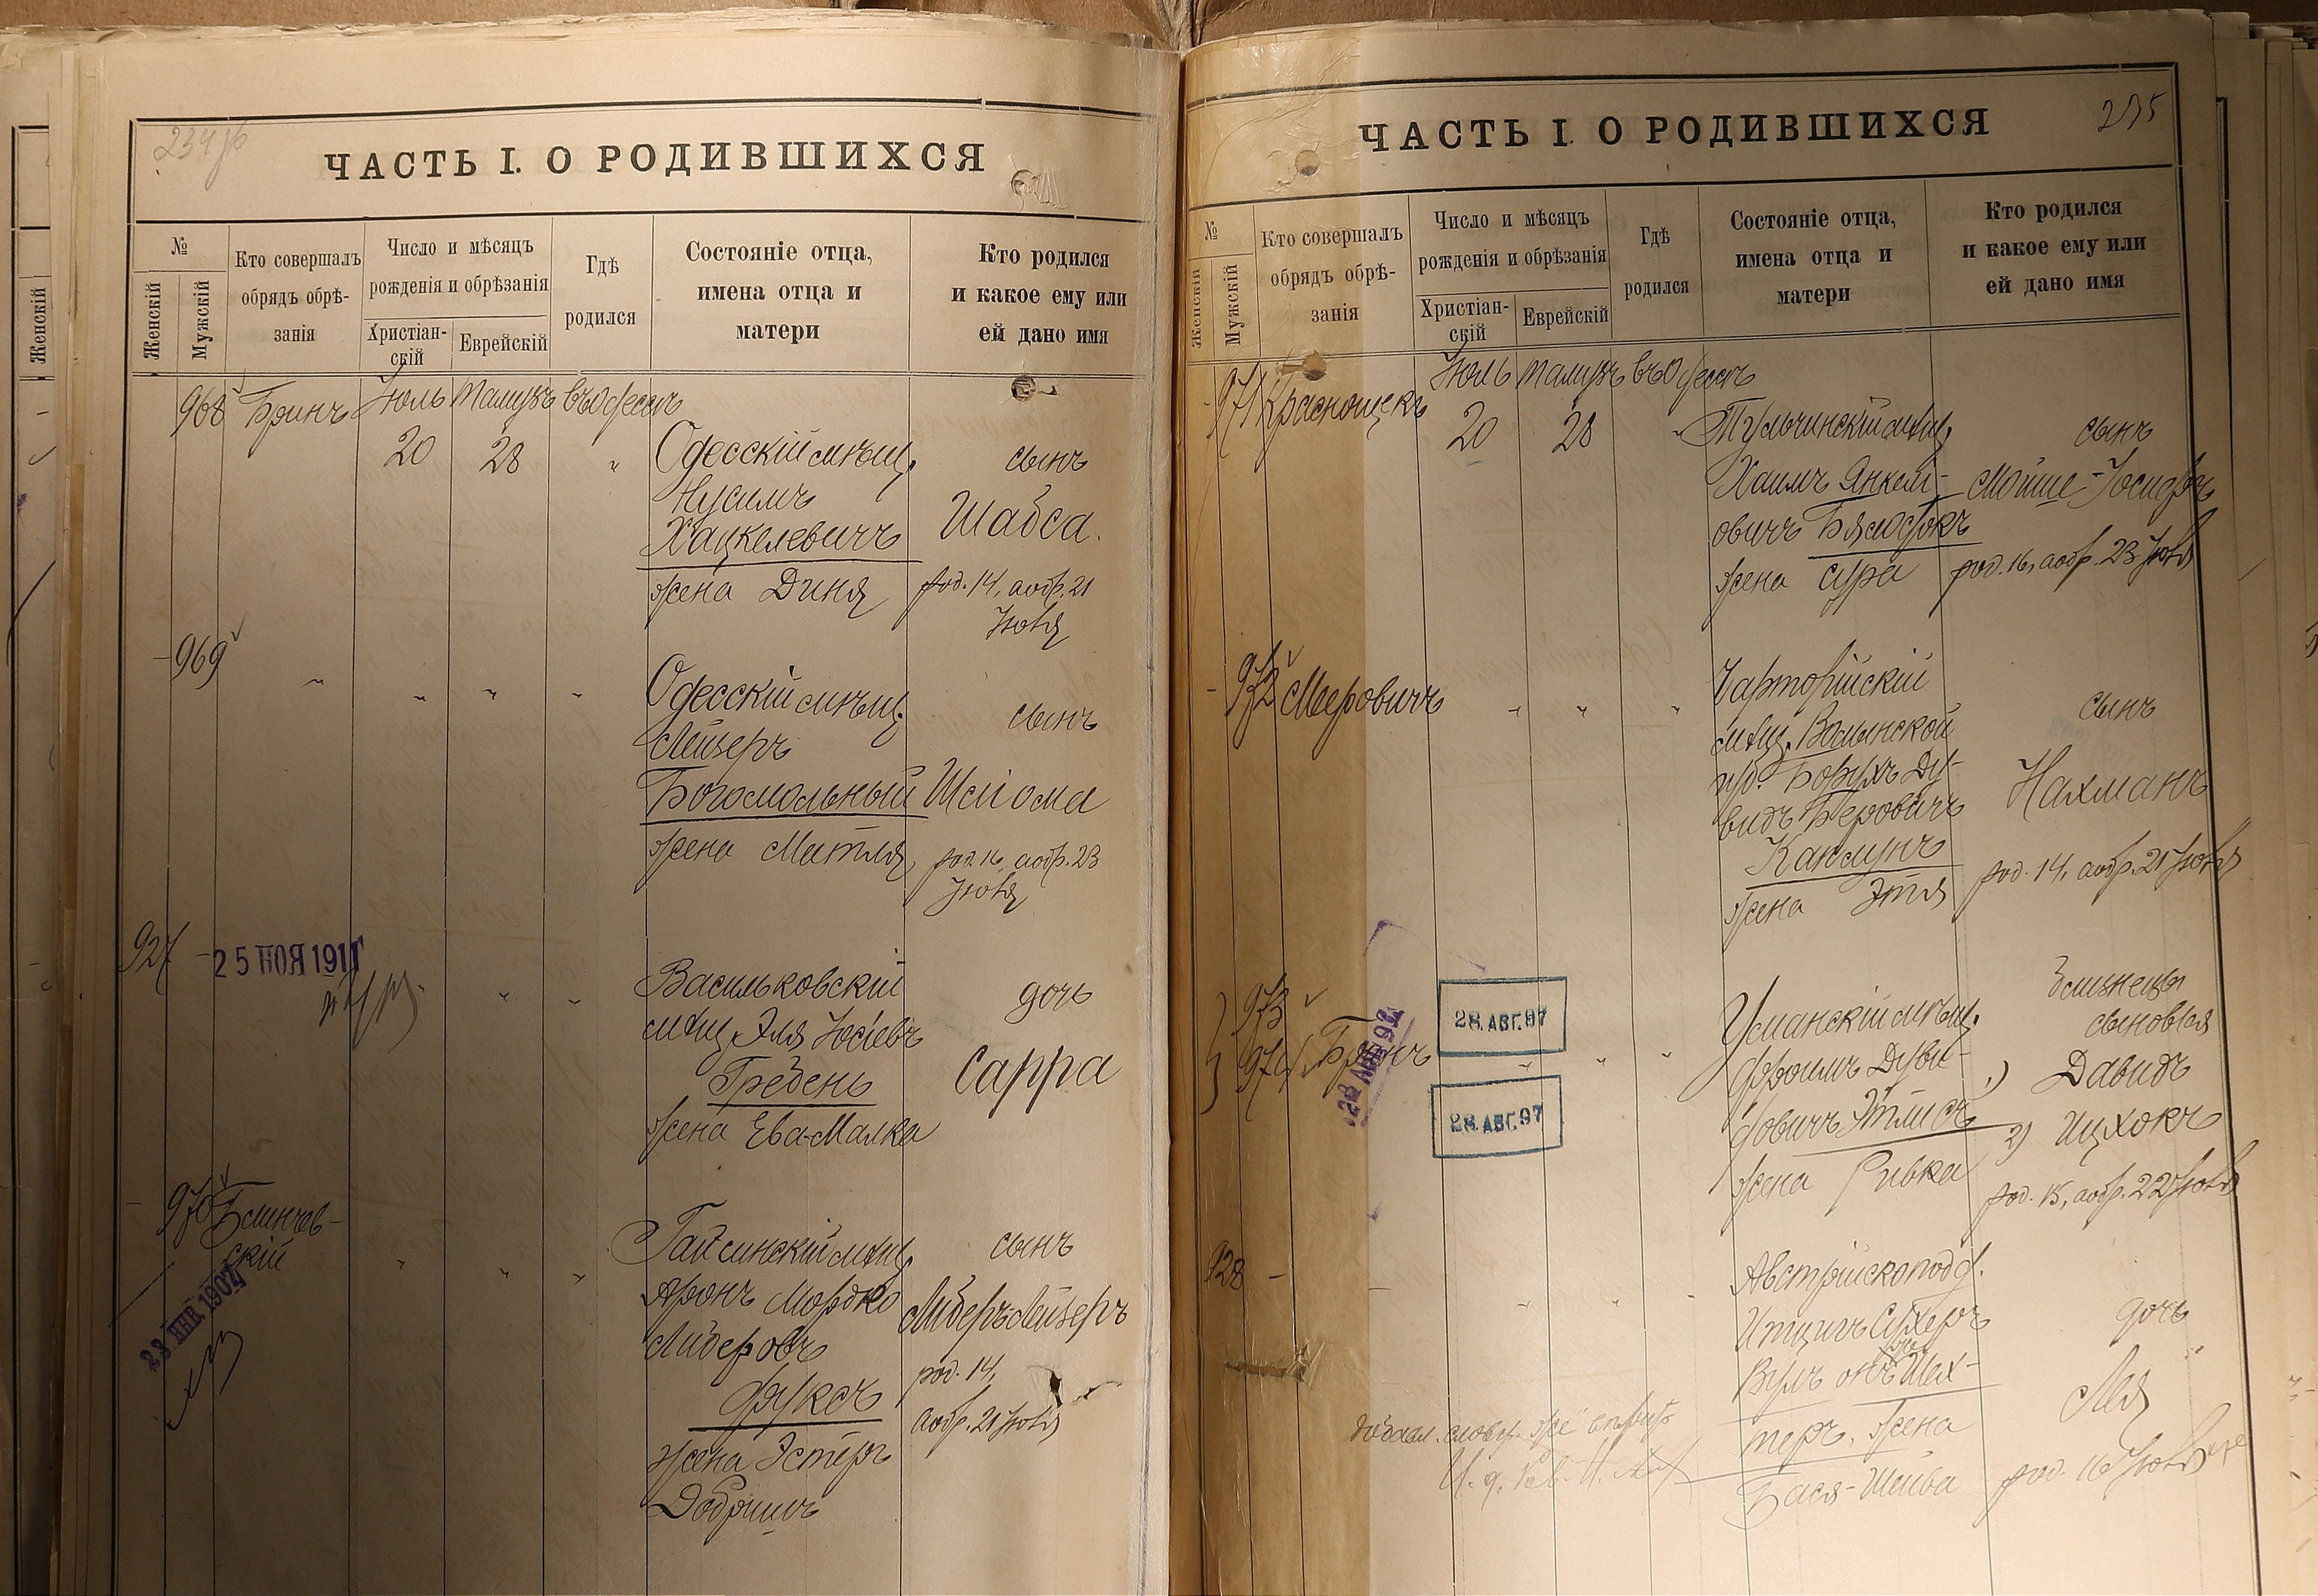 ЧАСТЬ I. О РОДИВШИХСЯ
№
Женскій
Мужскій
Кто совершалъ
обрядъ обрѣ-
занія
Число и мѣсяцъ
рожденія и обрѣзанія
Христіан-
скій
Еврейскій
Гдѣ
родился
Состояніе отца,
имена отца и
матери
Кто родился
и какое ему или
ей дано имя
968 Бринъ Іюль Тамузъ въ Одессѣ
20 28 "
Одесскій мѣщ.
Нусимъ
Хацкелевичъ
жена Диня
сынъ
Шабса.
род. 14, аобр. 21
Іюля
969 " " " "
Одесскій мѣщ.
Лейзеръ
Богомольный
жена Матля
сынъ
Шлiома
род. 16, аобр. 23
Іюля
927 -
25 НОЯ 1911
" "
Васильковскій
мѣщ. Эля Іосіевъ
Гребень
жена Ева-Малка
дочь
Сарра
970 Блинчев-
скій
" " "
Гайсинскій мѣщ.
Аронъ Мордко
Либеровъ
Фуксъ
жена Эстеръ
Добришъ
сынъ
Либеръ-Лейзеръ
род. 14,
аобр. 21 Іюля
ЧАСТЬ I. О РОДИВШИХСЯ
235
№
Женскій
Мужскій
Кто совершалъ
обрядъ обрѣ-
занія
Число и мѣсяцъ
рожденія и обрѣзанія
Христіан-
скій
Еврейскій
Гдѣ
родился
Состояніе отца,
имена отца и
матери
Кто родился
и какое ему или
ей дано имя
971 Краснощекъ Іюль Тамузъ въ Одессѣ
20 28 "
Тульчинскій мѣщ.
Хаимъ Янкел-
овичъ
жена Сура
сынъ
Мойше-Іосифъ
род. 16, аобр. 23 Іюля
972 Мееровичъ " " "
Чарторійскій
мѣщ. Волынской
губ. Борухъ Ду-
видъ Беровичъ
Каплунъ
жена Этля
сынъ
Нахманъ
род. 14, аобр. 21 Іюля
973
974 Бринъ
28. АВГ. 97
28. АВГ. 97
" " "
Уманскій мѣщ.
Фроимъ Дуви-
довичъ Этлисъ
жена Ривка
близнецы
сыновья
1) Давидъ
2) Ицхокъ
род. 15, аобр. 22 Іюля
928 - " " "
Австрійскоподд.
Итцигъ Сухеръ
Вулъ онъ же Шех-
теръ, жена
Бася-Шейва
дочь
Лея
род. 16 Іюля